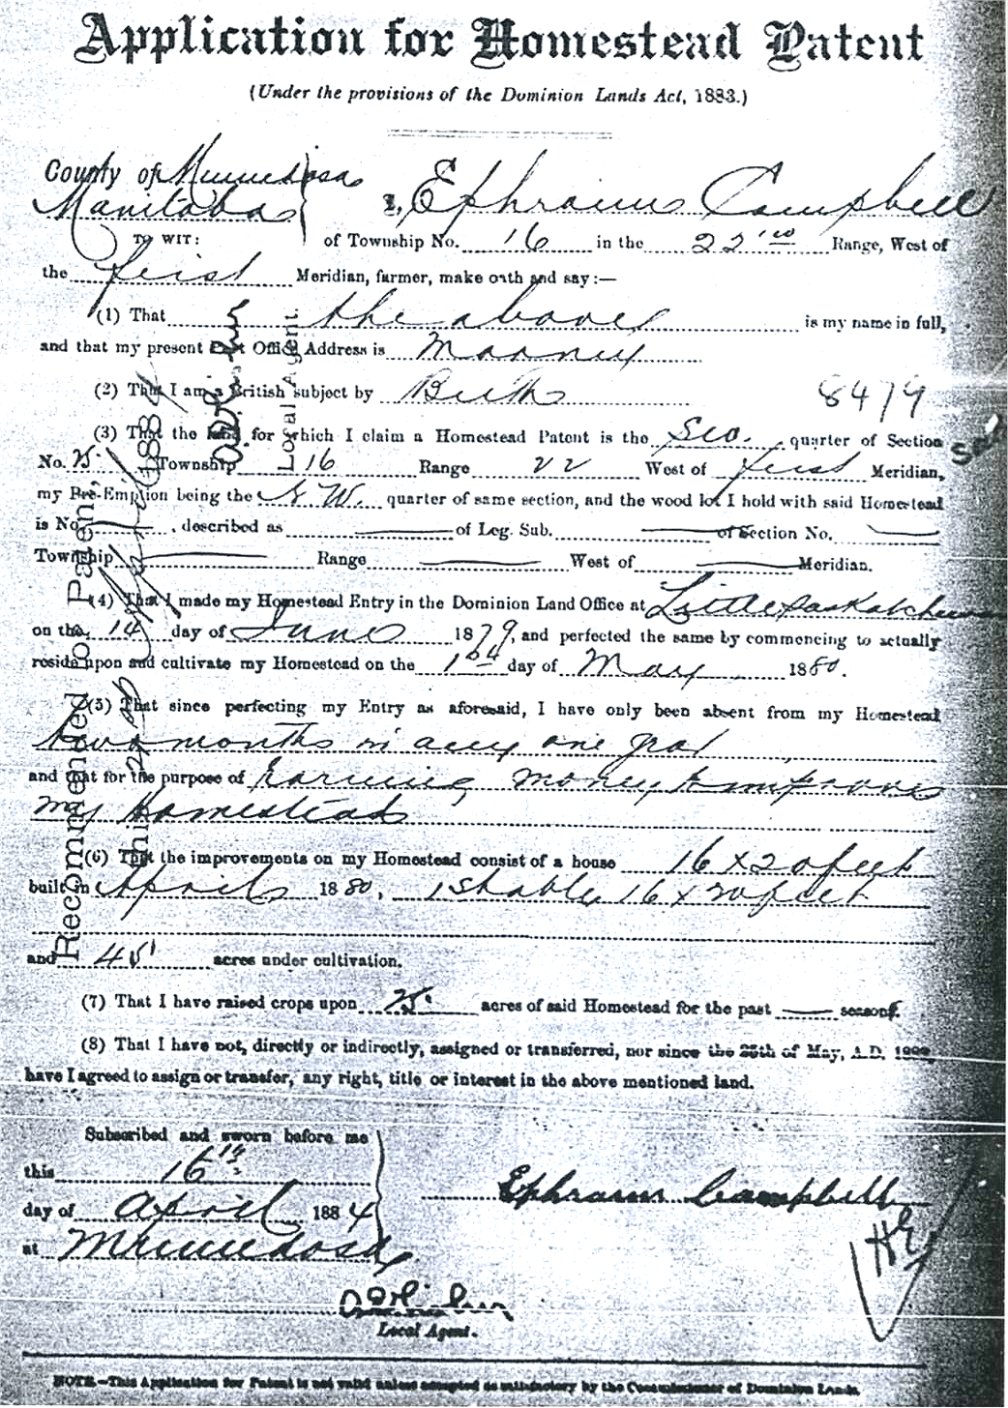 Application for Homestead Patent
(Under the provisions of the Dominion Lands Act, 1883.)
County of Minnedosa
Manitoba
I, Ephraim Campbell
TO WIT:
of Township No. 16 in the 22nd Range, West of
the first Meridian, farmer, make oath and say:—
(1) That the above is my name in full,
and that my present Post Office Address is Mooney
(2) That I am a British subject by Birth
8479
(3) That the land for which I claim a Homestead Patent is the quarter of Section
No. Township 16 Range 22 West of first Meridian,
my Pre-Emption being the quarter of same section, and the wood lot I hold with said Homestead
is No. , described as of Leg. Sub. of Section No.
Township Range West of Meridian.
(4) That I made my Homestead Entry in the Dominion Land Office at Little Saskatchewan
on the 14 day of June 1879, and perfected the same by commencing to actually
reside upon and cultivate my Homestead on the 1st day of May 1880.
(5) That since perfecting my Entry as aforesaid, I have only been absent from my Homestead
two months in any one year
and that for the purpose of Earning money to improve
my Homestead
(6) That the improvements on my Homestead consist of a house 16 x 20 feet
built in April 1880, 1 stable 16 x 20 feet
and 45 acres under cultivation.
(7) That I have raised crops upon acres of said Homestead for the past seasons.
(8) That I have not, directly or indirectly, assigned or transferred, nor since the 25th of May, A.D.
have I agreed to assign or transfer, any right, title or interest in the above mentioned land.
Subscribed and sworn before me
this 16th
day of April 1884
at Minnedosa
Ephraim Campbell
Local Agent.
NOTE.—This Application for Patent is not valid unless accepted as satisfactory by the Commissioner of Dominion Lands.
Recommended to Patent,
this April 1884
Local Agent.